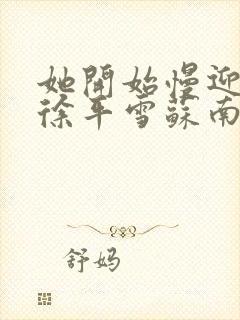 她開始慢迎
徐平雪蘇南
舒妈